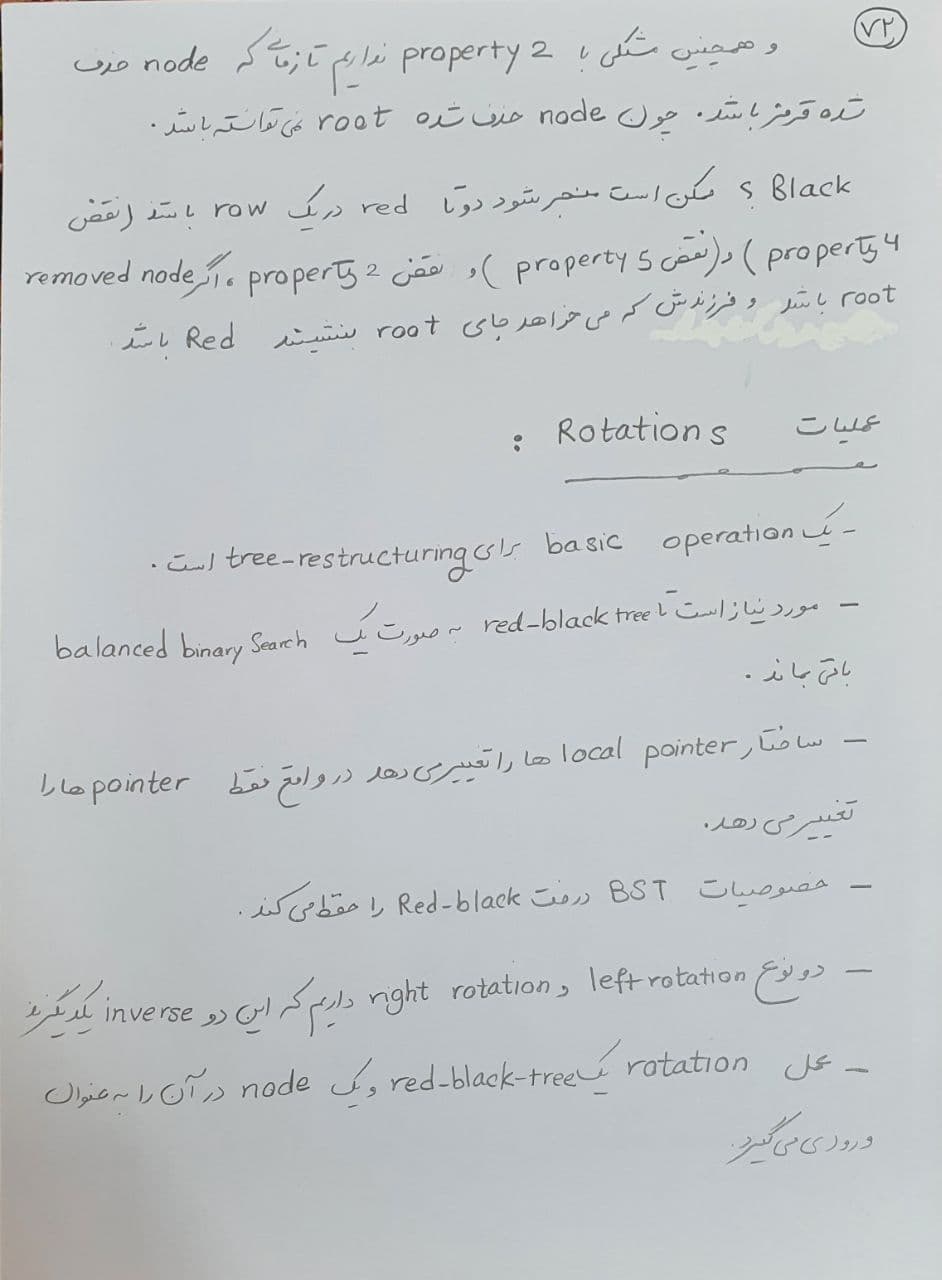 ۷۲
و همچنین مشکلی با property 2 نداریم تا زمانی که node حذف
شده قرمز باشد. چون node حذف شده root نمی توانسته باشد.
Black ؟ ممکن است منجر شود دوتا red در یک row باشند (نقض
property 4) و (نقض property 5) و نقض property 2، اگر removed node
root باشد و فرزندش که می خواهد جای root بنشیند Red باشد
عملیات Rotations :
- یک basic operation برای tree-restructuring است.
- مورد نیاز است تا red-black tree به صورت یک balanced binary Search
باقی بماند.
- ساختار local pointer ها را تغییر می دهد در واقع فقط pointer ها را
تغییر می دهد.
- خصوصیات BST درخت Red-black را حفظ می کند.
- دو نوع left rotation و right rotation داریم که این دو inverse یکدیگرند
- عمل rotation یک red-black-tree و یک node در آن را به عنوان
ورودی می گیرد.